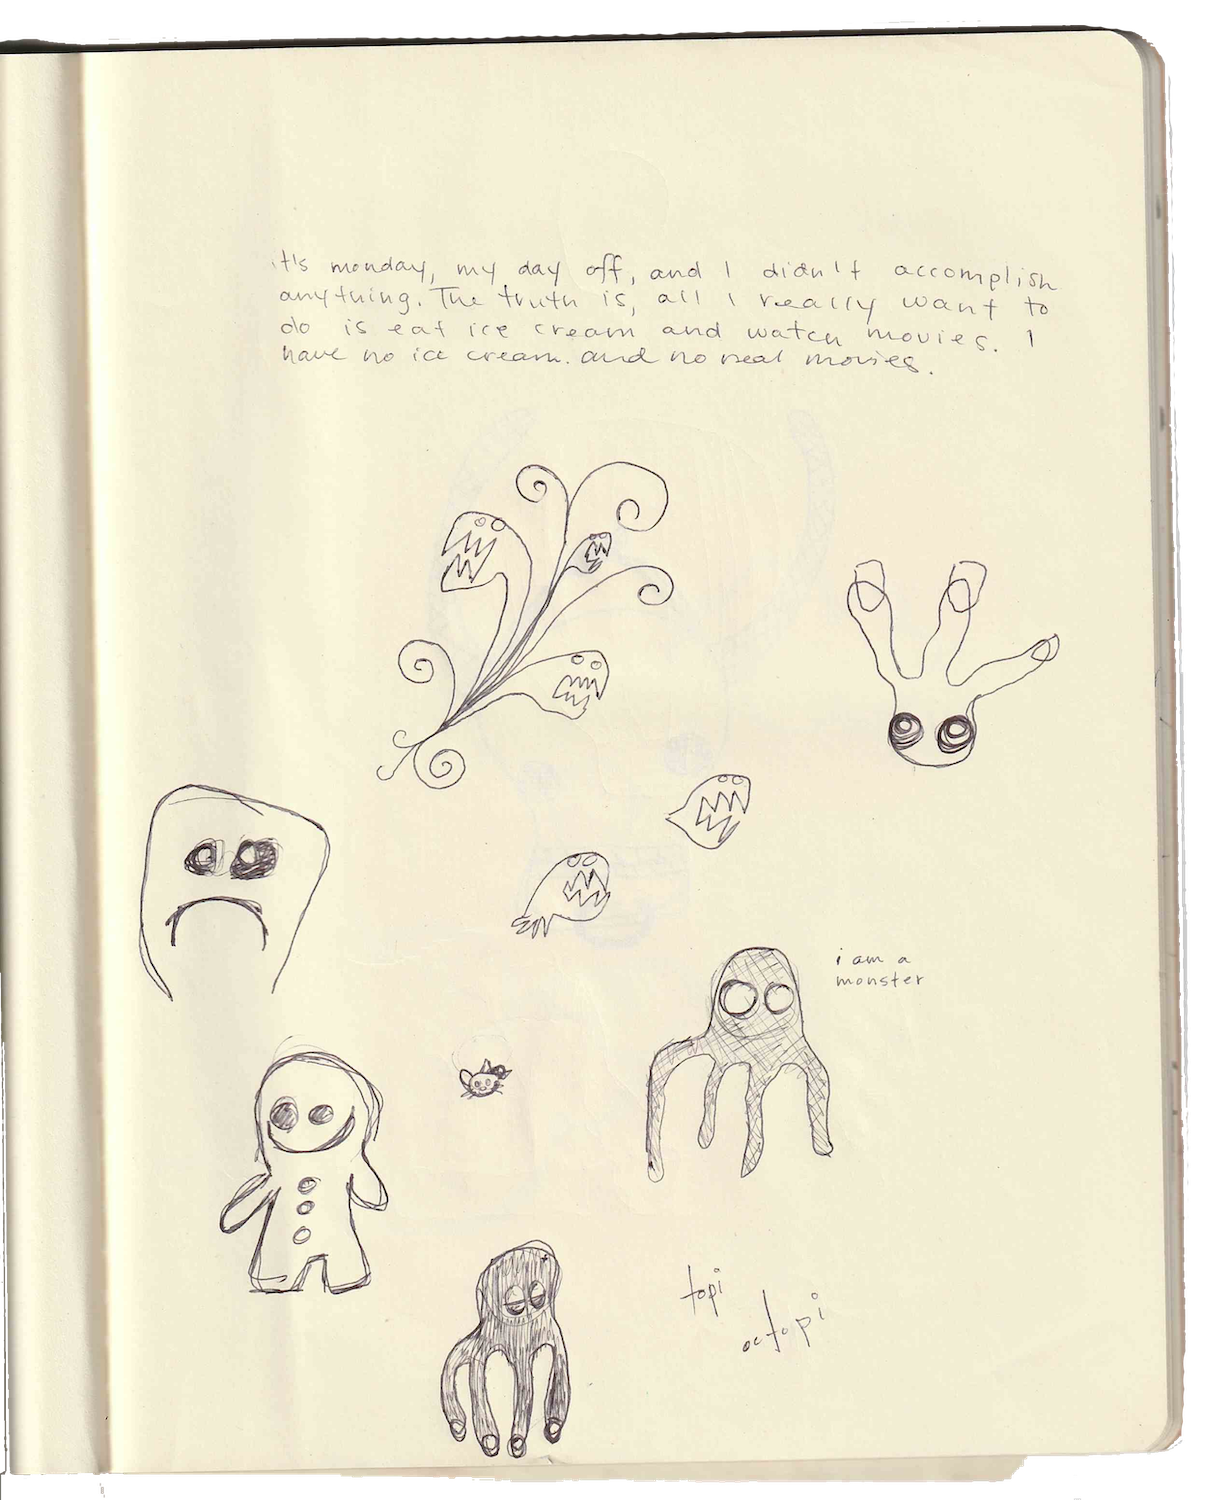 it's monday, my day off, and I didn't accomplish
anything. The truth is, all I really want to
do is eat ice cream and watch movies. I
have no ice cream. and no real movies.
i am a
monster
topi
octopi